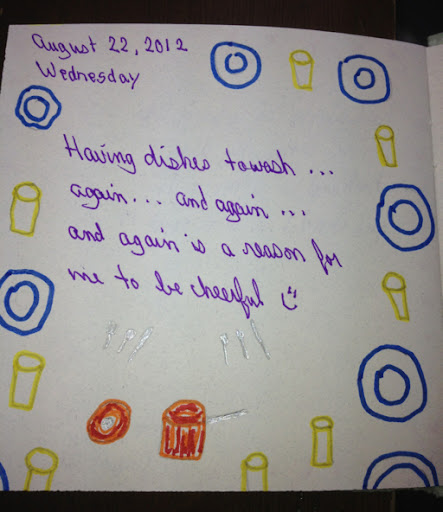 August 22, 2012
Wednesday
Having dishes to wash ...
again... and again ...
and again is a reason for
me to be cheerful